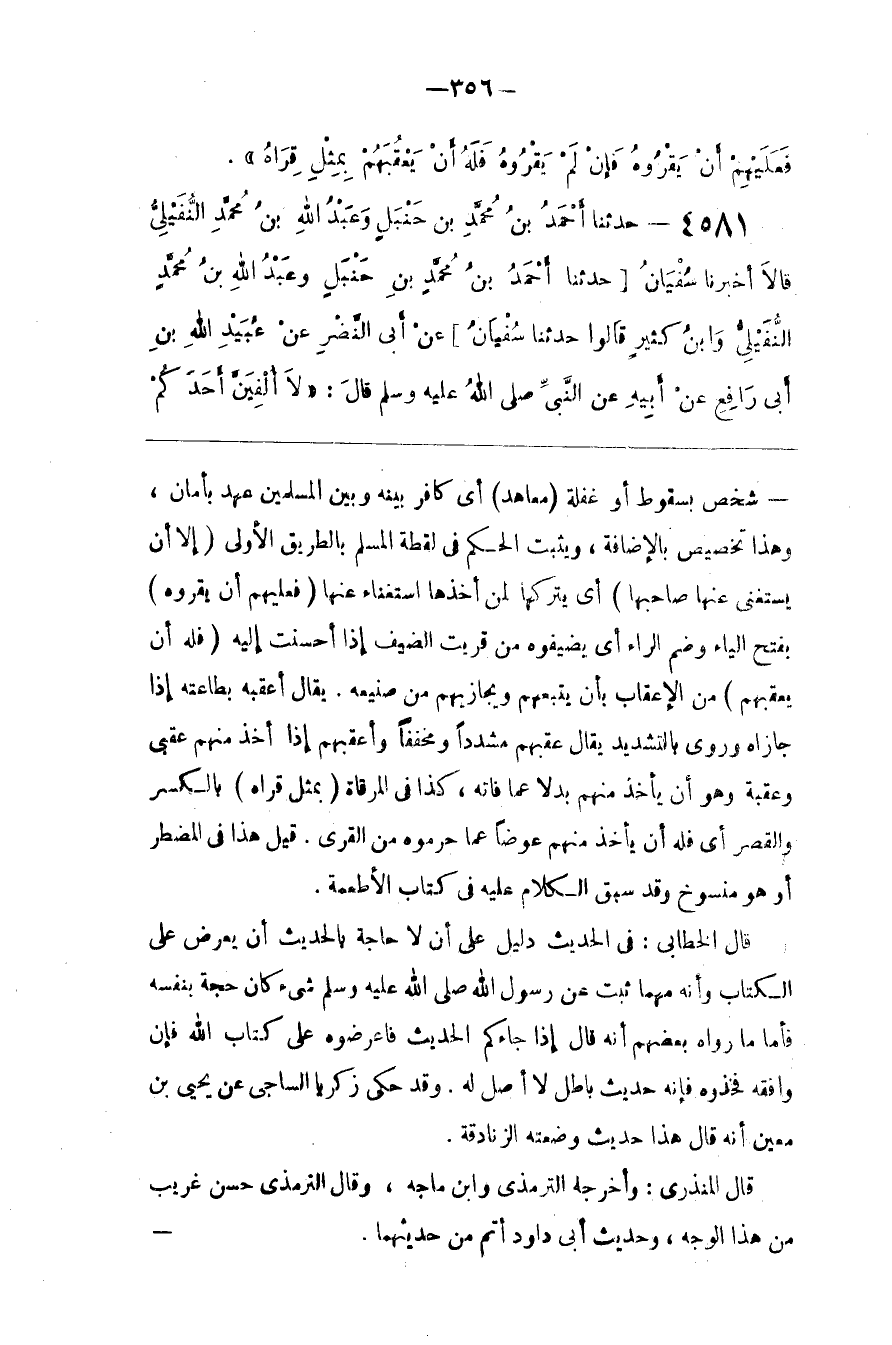 — ٣٥٦ —
فَعَلَيْهِمْ أَنْ يَقْرُوهُ فَإِنْ لَمْ يَقْرُوهُ فَلَهُ أَنْ يَعْقُبَهُمْ بِمِثْلِ قِرَاهُ » .
٤٥٨١ — حدثنا أَحْمَدُ بنُ مُحمَّدِ بن حَنْبَلٍ وَعَبْدُ اللهِ بنُ مُحمَّدٍ النُّفَيْلِيُّ
قالاَ أخبرنا سُفْيَانُ [ حدثنا أَحْمَدُ بنُ مُحمَّدٍ بنِ حَنْبَلٍ وعَبْدُ اللهِ بنُ مُحمَّدٍ
النُّفَيْلِيُّ وَابنُ كَثيرٍ قَالوا حدثنا سُفْيَانُ ] عنْ أبى النَّضْرِ عنْ عُبَيْدِ اللهِ بنِ
أبى رَافِعٍ عنْ أبِيهِ عن النَّبىِّ صلى اللهُ عليه وسلم قالَ : « لاَ أُلْفِيَنَّ أَحَدَكُمْ
— شخص بسقوط أو غفلة (معاهد) أى كافر بينه وبين المسلمين عهد بأمان ،
وهذا تخصيص بالإضافة ، ويثبت الحـكم فى لقطة المسلم بالطريق الأولى ( إلا أن
يستغنى عنها صاحبها ) أى يتركها لمن أخذها استغناء عنها ( فعليهم أن يقروه )
بفتح الياء وضم الراء أى يضيفوه من قريت الضيف إذا أحسنت إليه ( فله أن
يعقبهم ) من الإعقاب بأن يتبعهم ويجازيهم من صنيعه . يقال أعقبه بطاعته إذا
جازاه وروى بالتشديد يقال عقبهم مشدداً ومخففاً وأعقبهم إذا أخذ منهم عقبى
وعقبة وهو أن يأخذ منهم بدلا عما فاته ، كذا فى المرقاة ( بمثل قراه ) بالـكسر
والقصر أى فله أن يأخذ منهم عوضاً عما حرموه من القرى . قيل هذا فى المضطر
أو هو منسوخ وقد سبق الـكلام عليه فى كتاب الأطعمة .
قال الخطابى : فى الحديث دليل على أن لا حاجة بالحديث أن يعرض على
الـكتاب وأنه مهما ثبت عن رسول الله صلى الله عليه وسلم شىء كان حجة بنفسه
فأما ما رواه بعضهم أنه قال إذا جاءكم الحديث فاعرضوه على كتاب الله فإن
وافقه فخذوه فإنه حديث باطل لا أصل له . وقد حكى زكريا الساجى عن يحيى بن
معين أنه قال هذا حديث وضعته الزنادقة .
قال المنذرى : وأخرجه الترمذى وابن ماجه ، وقال الترمذى حسن غريب
من هذا الوجه ، وحديث أبى داود أتم من حديثهما . —